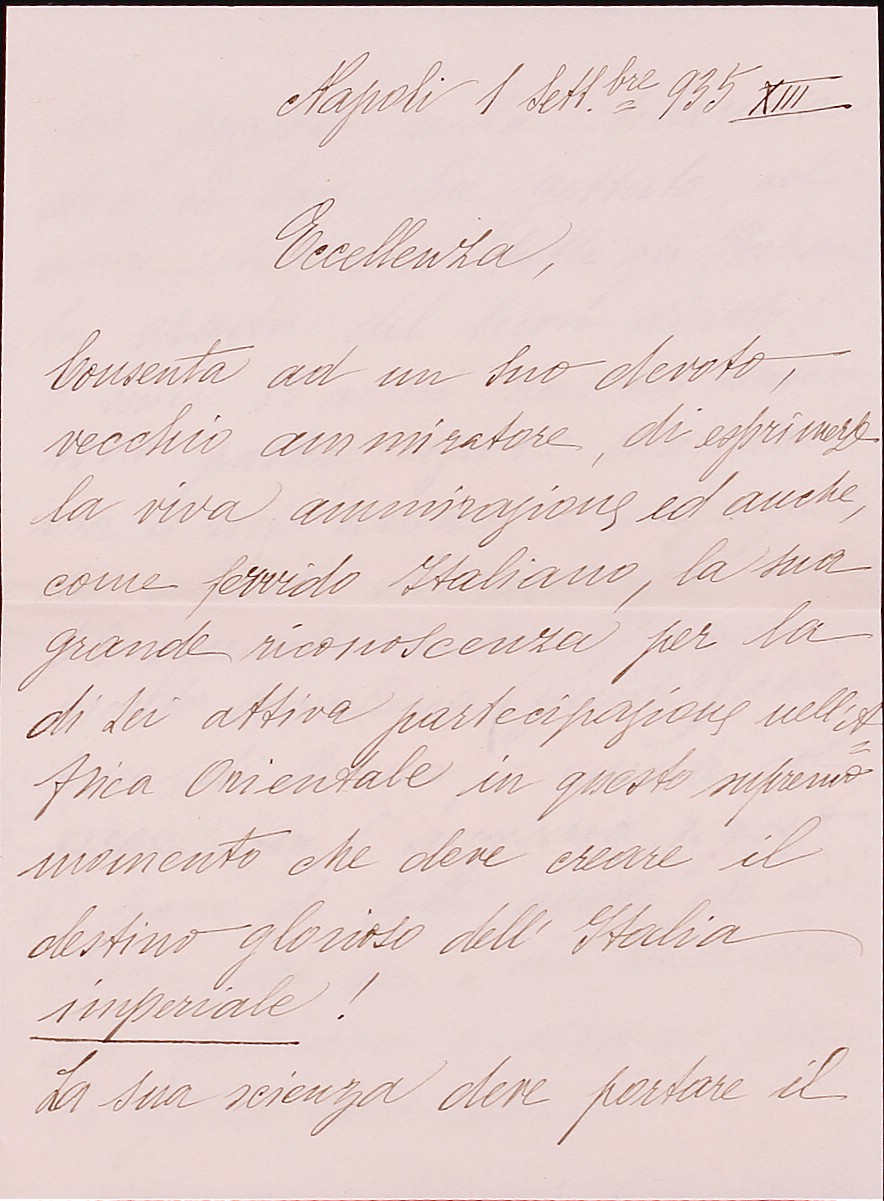 Napoli 1 Sett.bre 935 XIII
Eccellenza,
Consenta ad un suo devoto,
vecchio ammiratore, di esprimere
la viva ammirazione ed anche,
come fervido Italiano, la sua
grande riconoscenza per la
di Lei attiva partecipazione nell'A=
frica Orientale in questo supremo
momento che deve creare il
destino glorioso dell' Italia
imperiale !
La sua scienza deve portare il